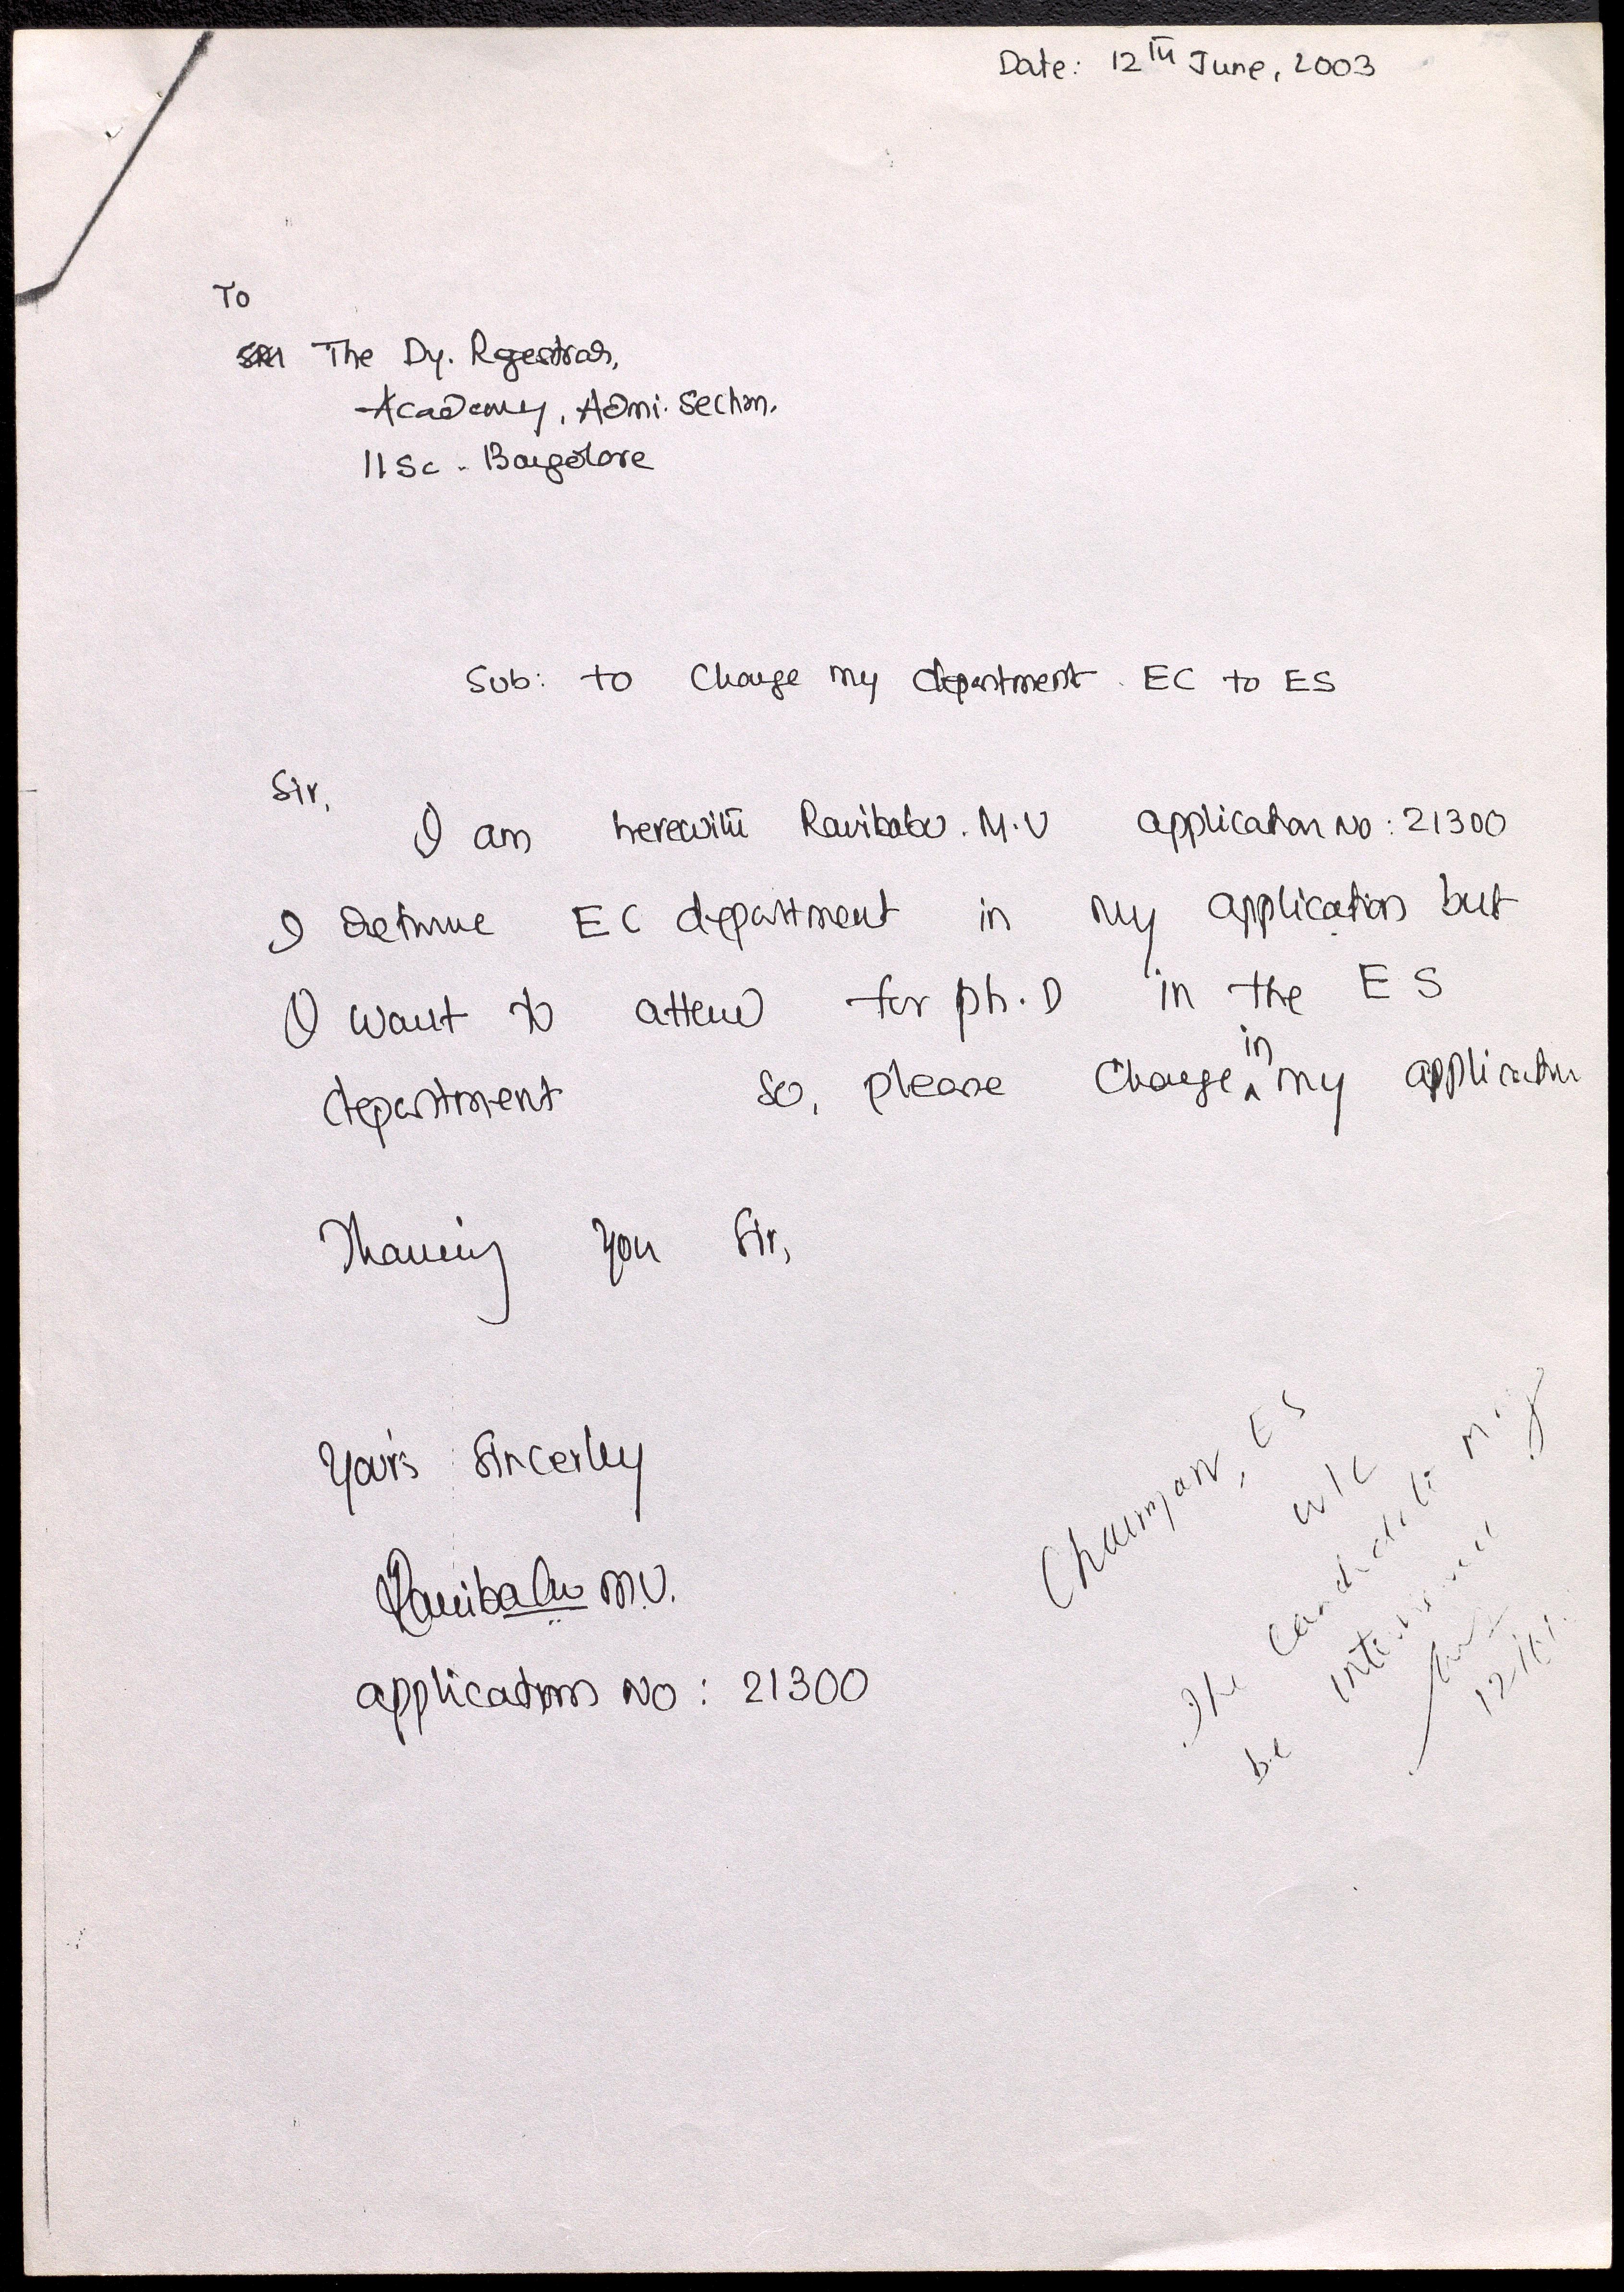 Date: 12TH June, 2003
To
The Dy. Regestrar,
Academy, Admi. Section.
IISc. Bangolore
Sub: to Change my department EC to ES
Sir,
I am herewith Ravibabu. M.V application No: 21300
I EC department in my application but
I want to attend for ph.D in the ES
department so, please change in my application
Thanking you Sir,
Your's Sincerley
Ravibabu M.V.
application No: 21300
Chairman, ES
The candidate may
be interviewed